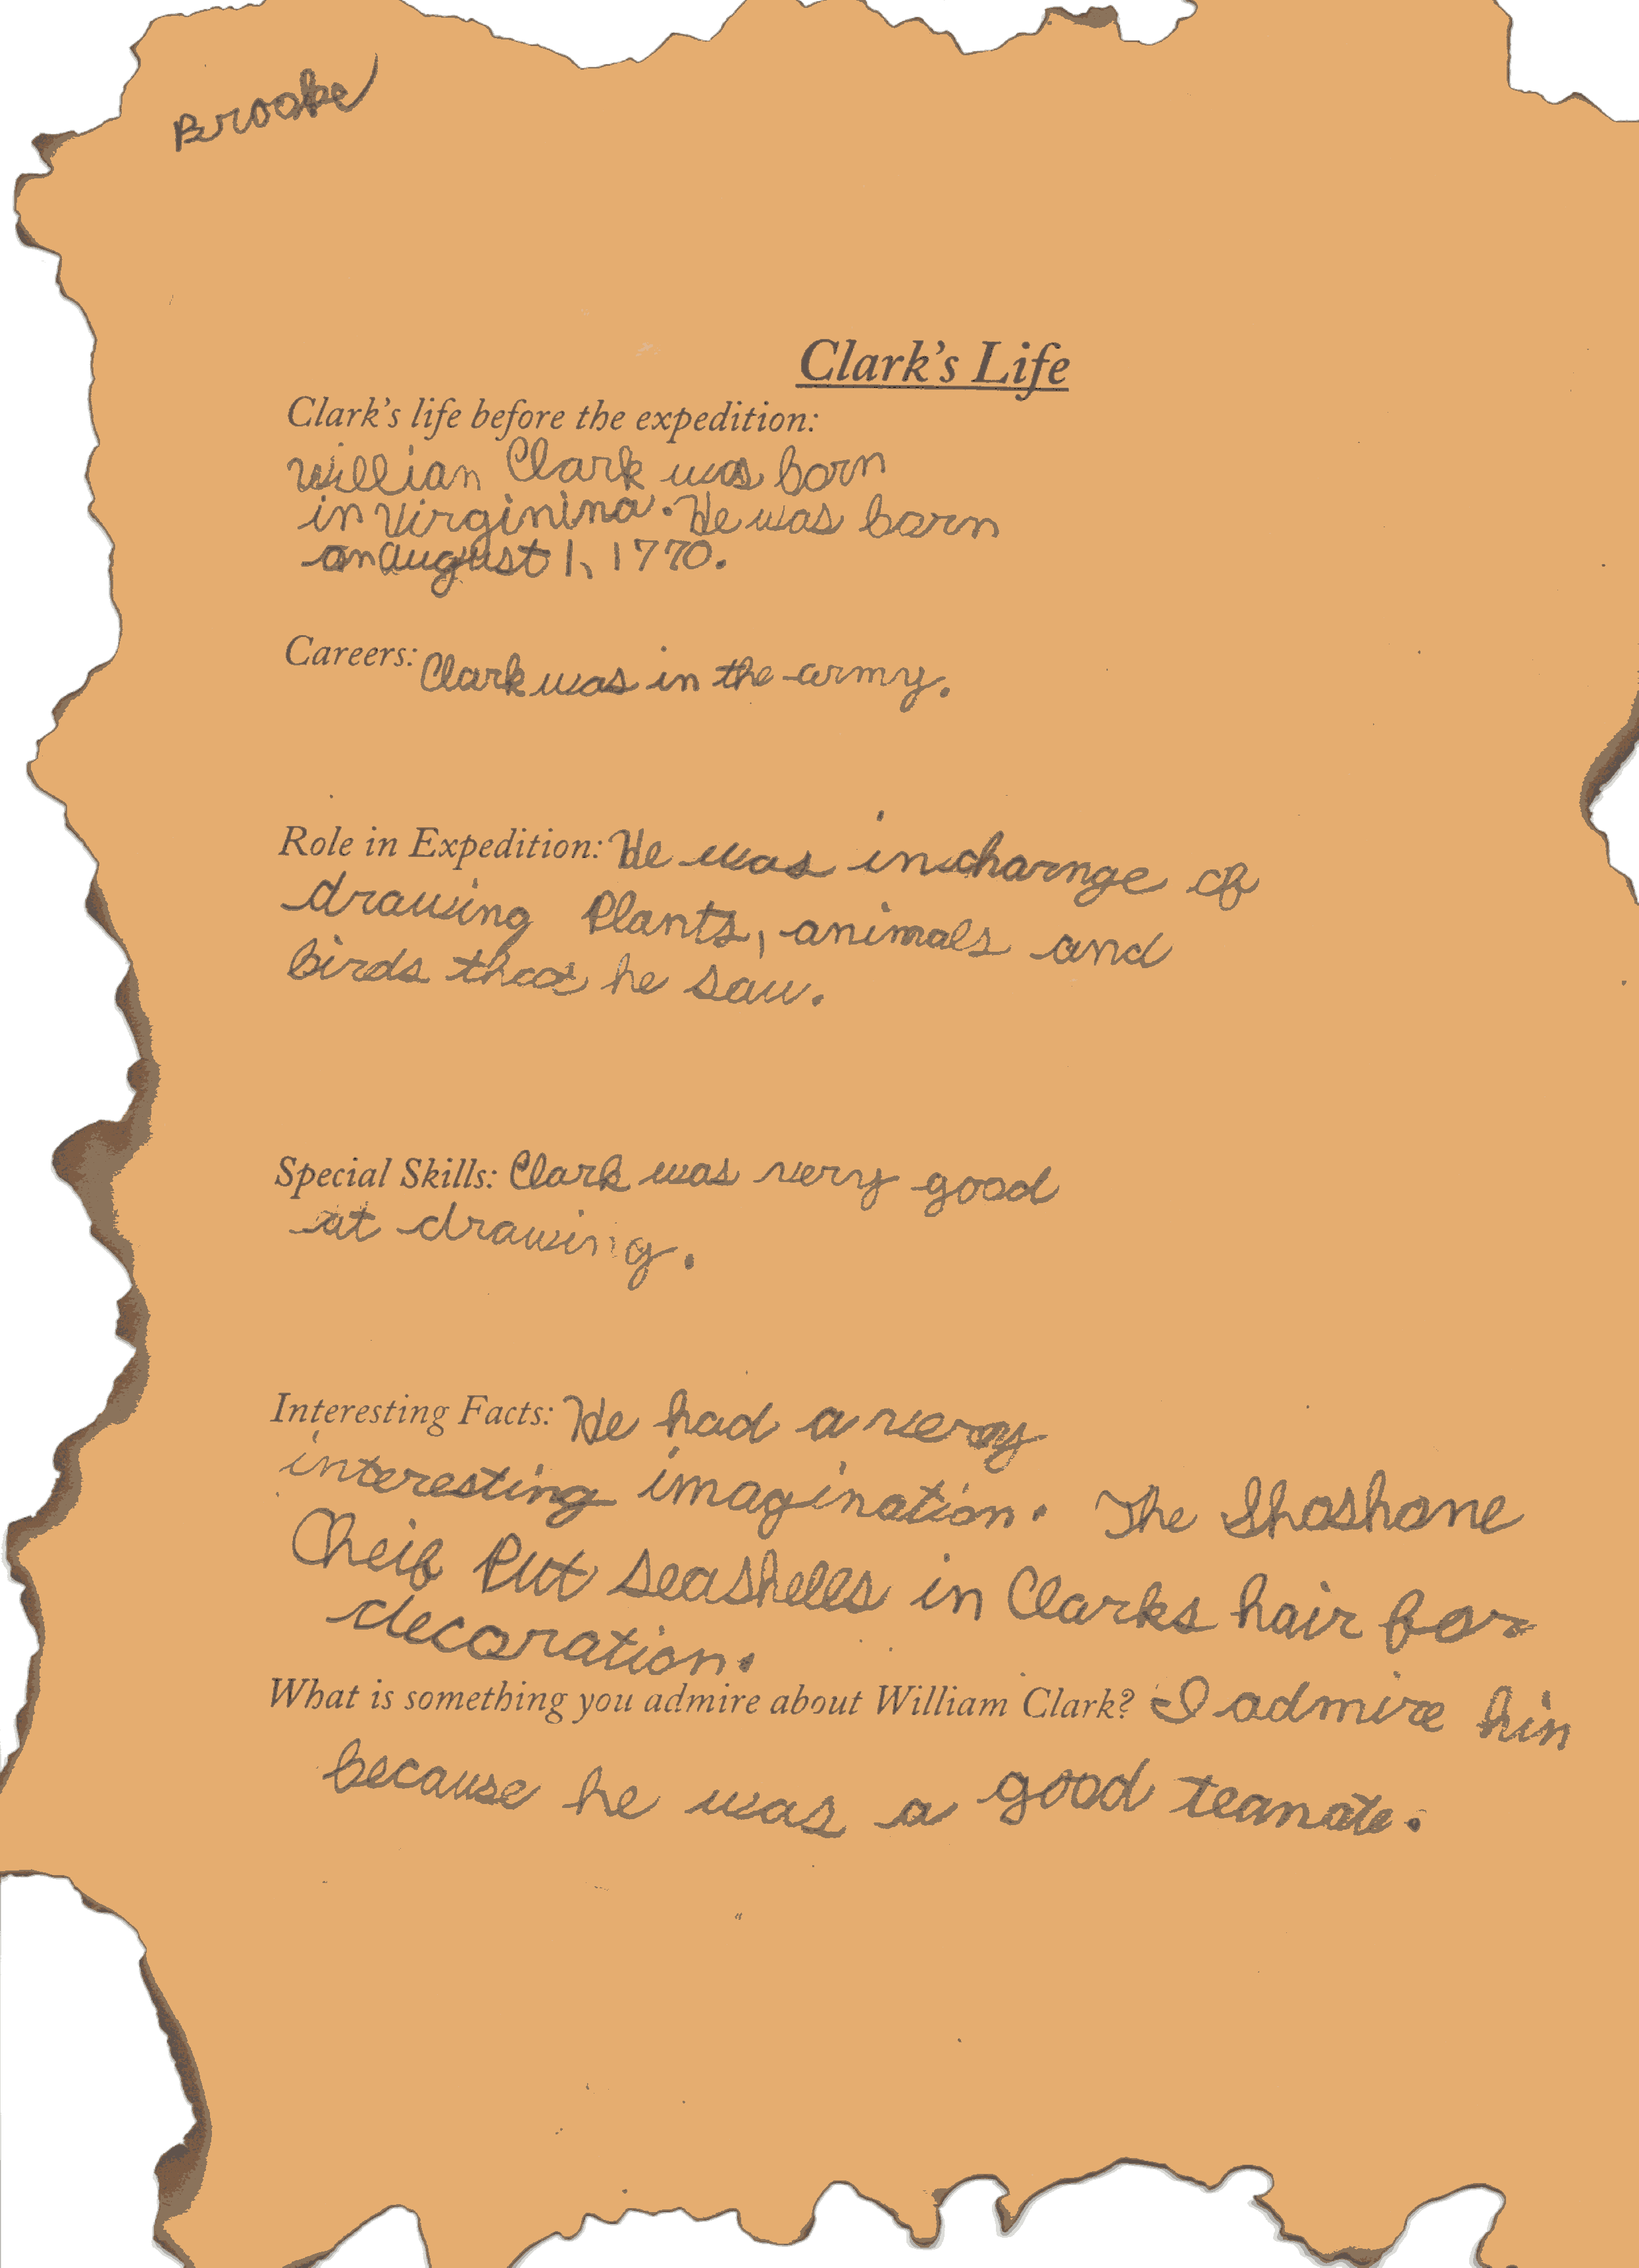 Brooke
Clark's Life
Clark's life before the expedition:
Willian Clark was born
in Virginina. He was born
on august 1, 1770.
Careers: Clark was in the army.
Role in Expedition: He was incharnge of
drawing Plants, animals and
birds that he saw.
Special Skills: Clark was very good
at drawing.
Interesting Facts: He had a very
interesting imagination. The Shoshone
Cheif Put seashells in Clarks hair for
decoration.
What is something you admire about William Clark? I admire hin
because he was a good teanate.